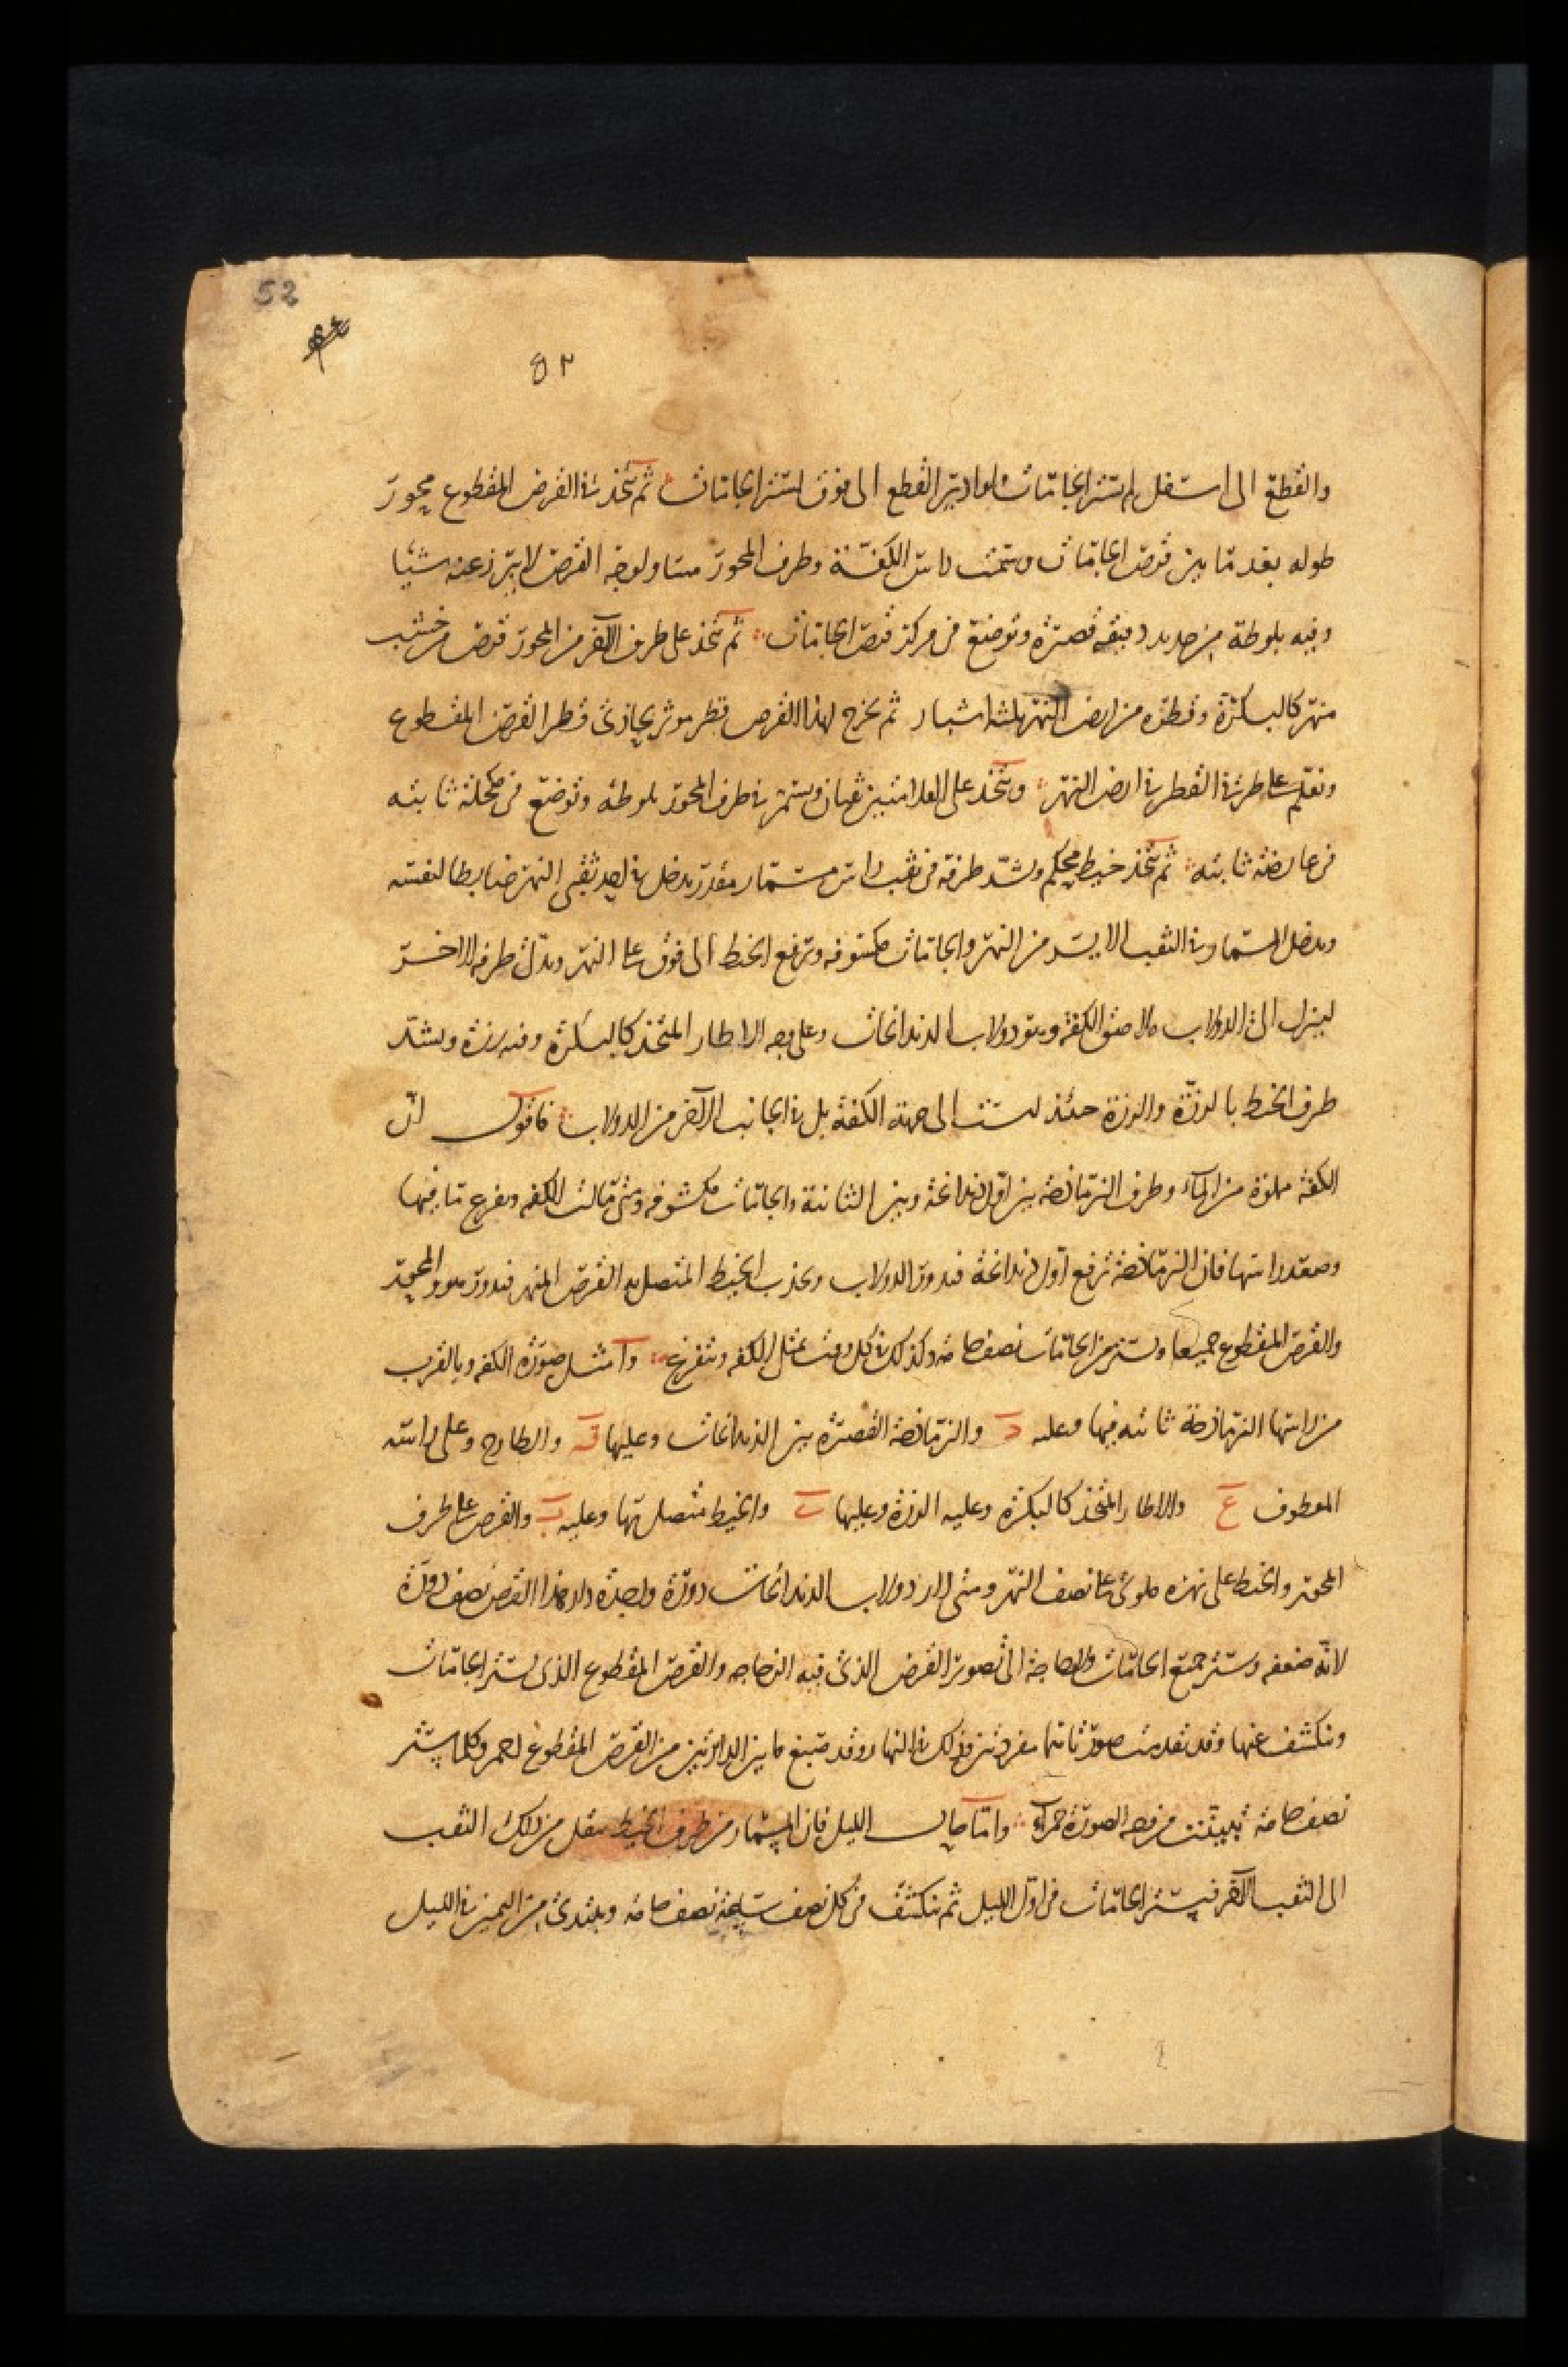 52
٥٢
والقطع الى اسفل لم تستر الجامات ولو ادير القطع الى فوق لستر الجامات ثم يتخذ في القرص المقطوع محور
طوله بعد ما بين قرص الجامات وسمت راس الكفة وطرف المحور مساو لوجه القرص لا يبرز عنه شيئا
وفيه بلوطة من حديد دقيقه قصيرة وتوضع في مركز قرص الجامات ثم يتخذ على طرف الآخر من المحور قرص من خشب
منهر كالبكرة وقطره من ارض النهر ثلثة اشبار ثم يخرج لهذا القرص قطر موثر يحاذى قطر القرص المقطوع
ونعلم على طرفي القطر في ارض النهر ويتخذ على العلامتين ثقبان ويسمر في طرف المحور بلوطه وتوضع في مكحلة ثابته
في عارضة ثابته ثم يتخذ خيط محكم ويشد طرفه في ثقب راس مسمار مقدر يدخل في احد ثقبي النهر ضابطا لنفسه
ويدخل المسمار في الثقب الايسر من النهر والجامات مكشوفه وترفع الخيط الى فوق على النهر ويدلى طرفه الاخر
لينزل الى الدولاب ملاصق الكفة وهو دولاب الدندانجات وعلى وجه الاطار المتخذ كالبكرة وفيه رزة ويشد
طرف الخيط بالرزة والرزة حينئذ ليست الى جهة الكفة بل في الجانب الآخر من الدولاب فاقول ان
الكفة مملوة من الماء وطرف الزمانجة بين اول دندانجة وبين الثانية والجامات مكشوفه ومتى مالت الكفه وتفرغ ما فيها
وصعد راسها فان الزمانجة ترفع اول دندانجة فيدور الدولاب ويجذب الخيط المتصل به القرص المنهر فيدور هو والمحور
والقرص المقطوع جميعا ويستر من الجامات نصف جامة وكذلك في كل وقت تمتلى الكفه وتتفرغ وامثل صورة الكفه وبالقرب
من راسها الزمانجة ثابته فيها وعليه د والزمانجة القصيرة بين الدندانجات وعليها ف والطارح وعلى راسه
المعطوف ع والاطار المتخذ كالبكرة وعليه الرزة وعليها ت والخيط متصل بها وعليه ب والقرص على طرف
المحور والخيط على نهره ملوى على نصف النهر ومتى دار دولاب الدندانجات دورة واحدة دار هذا القرص نصف دورة
لانه ضعفه وستر جميع الجامات ولا حاجة الى تصوير القرص الذي فيه الزجاجه والقرص المقطوع الذي يستر الجامات
وتنكشف عنها وقد تقدمت صورتاهما مفردتين وذلك في النهار وقد صبغ ما بين الدائرتين من القرص المقطوع احمر وكلما يستر
نصف جامة تبينت من وجه الصورة حمراء واما حال الليل فان المسمار من طرف الخيط ينقل من ذلك الثقب
الى الثقب الآخر فيستر الجامات في اول الليل ثم تنكشف في كل نصف ساعة نصف جامه ويبتدئ من اليمين في الليل